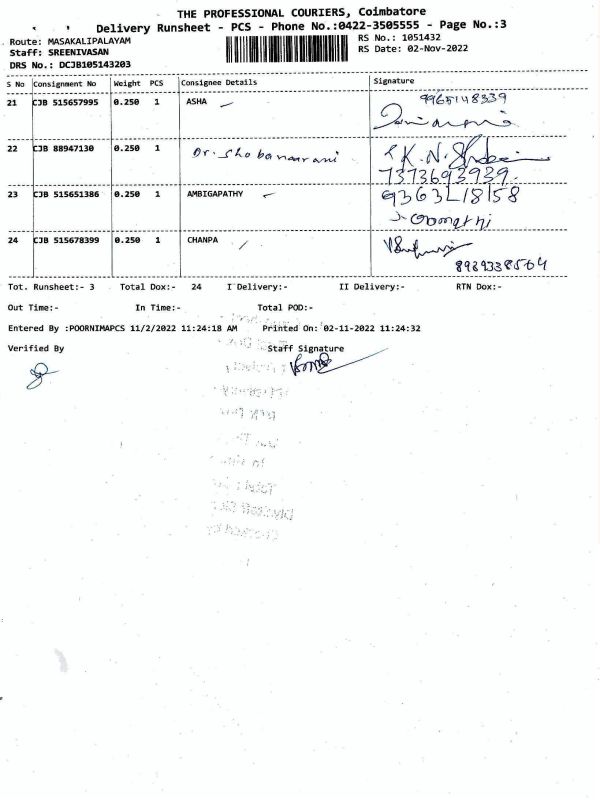 THE PROFESSIONAL COURIERS, Coimbatore
Delivery Runsheet - PCS - Phone No.:0422-3505555 - Page No.:3
Route: MASAKALIPALAYAM RS No.: 1051432
Staff: SREENIVASAN RS Date: 02-Nov-2022
DRS No.: DCJB105143203
S No Consignment No Weight PCS Consignee Details Signature
21 CJB 515657995 0.250 1 ASHA 9965148339
22 CJB 88947130 0.250 1 Dr. Shobanarani K.N.
7373693939
23 CJB 515651386 0.250 1 AMBIGAPATHY 9363418158
J. Gomathi
24 CJB 515678399 0.250 1 CHANPA
8939338564
Tot. Runsheet:- 3 Total Dox:- 24 I Delivery:- II Delivery:- RTN Dox:-
Out Time:- In Time:- Total POD:-
Entered By :POORNIMAPCS 11/2/2022 11:24:18 AM Printed On: 02-11-2022 11:24:32
Verified By Staff Signature